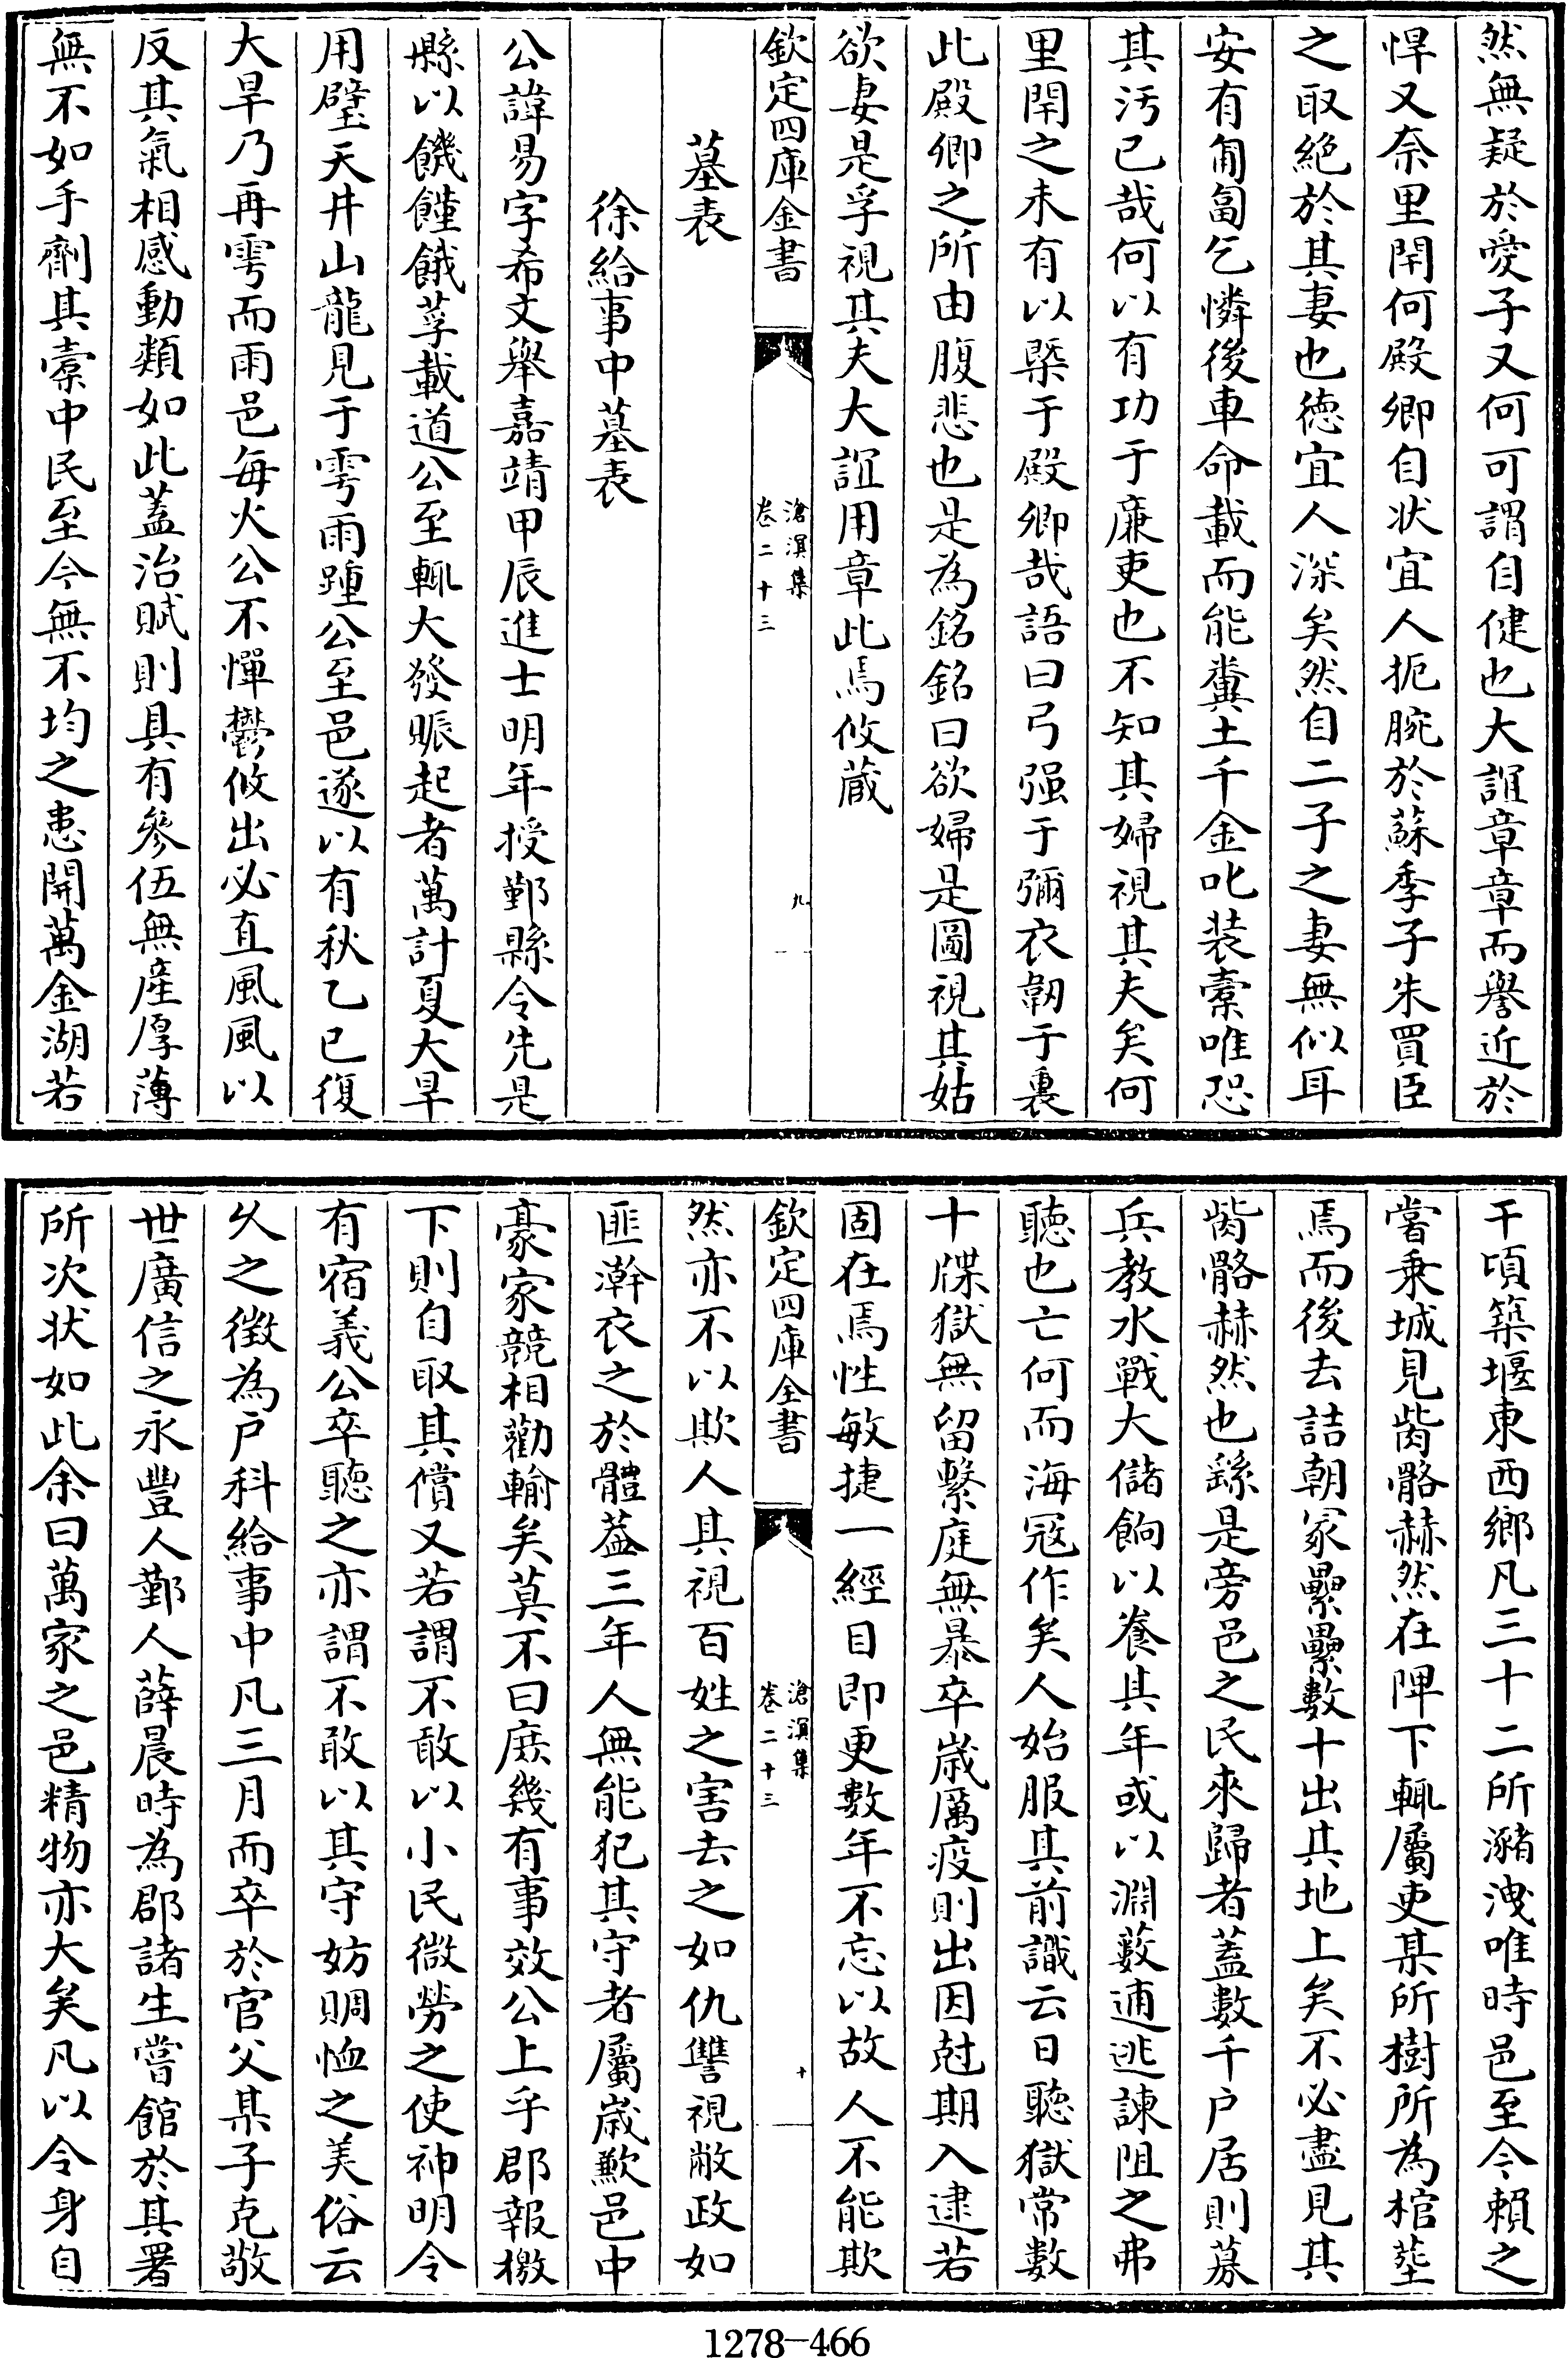 然無疑於愛子又何可謂自健也大誼章章而譽近於
悍又奈里閈何殿卿自状宜人扼腕於蘇季子朱買臣
之取絶於其妻也徳宜人深矣然自二子之妻無似耳
安有匍匐乞憐後車命載而能糞土千金叱装橐唯恐
其汚已哉何以有功于廉吏也不知其婦視其夫矣何
里閈之未有以槩于殿卿哉語曰弓强于彌衣韌于裏
此殿卿之所由腹悲也是為銘銘曰欲婦是圖視其姑
欲妻是孚視其夫大誼用章此焉攸蔵
欽定四庫全書
滄溟集
卷二十三
九
墓表
徐給事中墓表
公諱易字希文舉嘉靖甲辰進士明年授鄞縣令先是
縣以饑饉餓莩載道公至輒大發賑起者萬計夏大旱
用璧天井山龍見于雩雨踵公至邑遂以有秋乙巳復
大旱乃再雩而雨邑每火公不憚鬱攸出必直風風以
反其氣相感動類如此蓋治賦則具有參伍無産厚薄
無不如手劑其橐中民至今無不均之患開萬金湖若
干頃築堰東西鄉凡三十二所瀦洩唯時邑至今賴之
嘗乗城見胔骼赫然在陴下輒屬吏某所樹所為棺塟
焉而後去詰朝冢纍纍數十出其地上矣不必盡見其
胔骼赫然也繇是旁邑之民來歸者蓋數千户居則募
兵教水戰大儲餉以養其年或以淵藪逋逃諫阻之弗
聽也亡何而海冦作矣人始服其前識云日聽獄常數
十牒獄無留繫庭無暴卒嵗厲疫則出因尅期入逮若
固在焉性敏捷一經目即更數年不忘以故人不能欺
欽定四庫全書
滄溟集
卷二十三
十
然亦不以欺人其視百姓之害去之如仇讐視敝政如
匪澣衣之於體葢三年人無能犯其守者屬嵗歉邑中
豪家競相勸輸矣莫不曰庶幾有事效公上乎郡報檄
下則自取其償又若謂不敢以小民微勞之使神明令
有宿義公卒聽之亦謂不敢以其守妨賙恤之美俗云
乆之徵為户科給事中凡三月而卒於官父某子克敬
世廣信之永豐人鄞人薛晨時為郡諸生嘗館於其署
所次状如此余曰萬家之邑精物亦大矣凡以令身自
1278-466